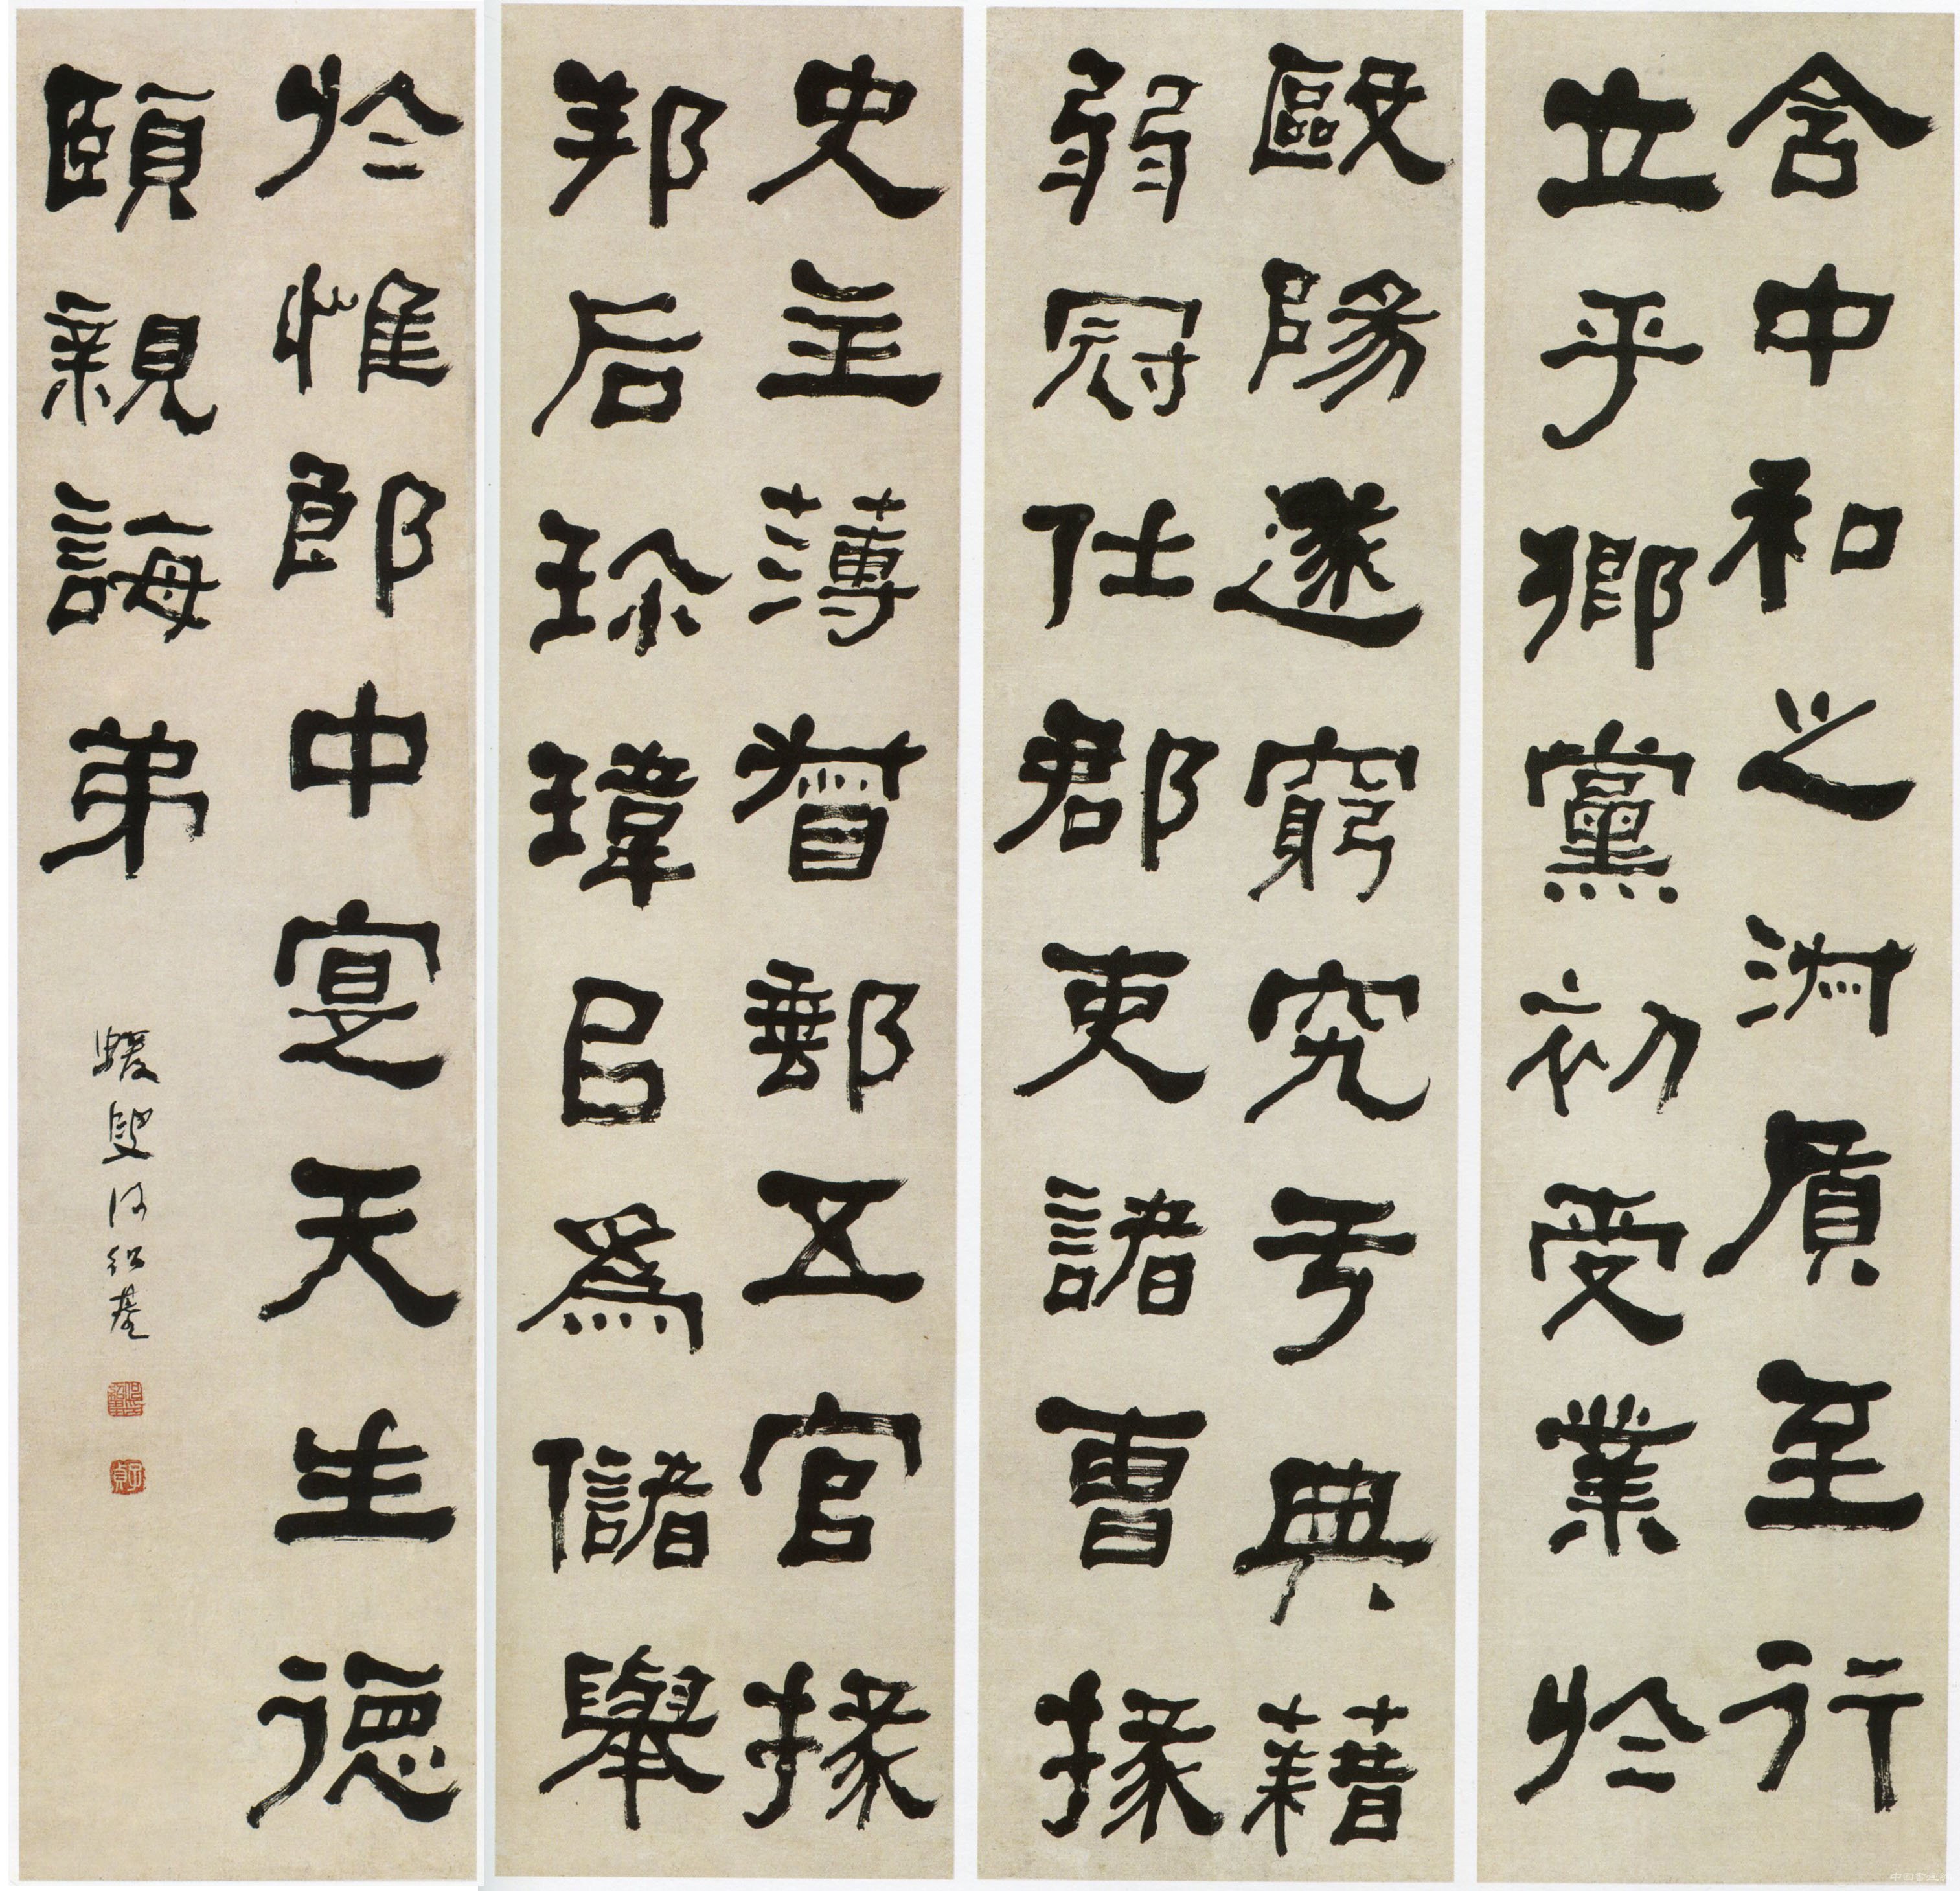 含中和之淑質至行
立乎鄉黨初受業於
毆陽遂窮究于典藉
弱冠仕郡吏諸曹掾
史主薄督郵五官掾
邦后珍瑋以為儲舉
於惟郎中寔天生德
頤親誨弟
蝯叟何紹基
子貞